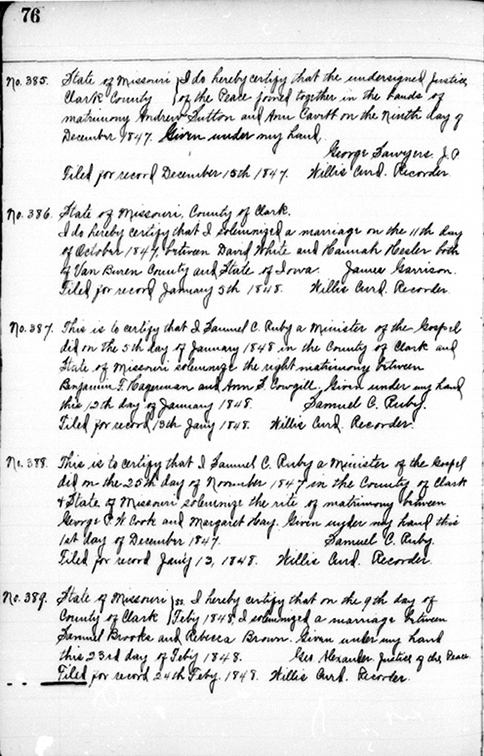 76
No. 385. State of Missouri } I do hereby certify that the undersigned Justice
Clark County } of the Peace joined together in the bands of
matrimony Andrew Sutton and Ann Cavitt on the Ninth day of
December 1847. Given under my hand.
George Sawyers J.P.
Filed for record December 15th 1847. Willis Curd. Recorder.
No. 386. State of Missouri, County of Clark.
I do hereby certify that I Solemnized a marriage on the 11th day
of October 1847, between David White and Hannah Hesler both
of Van Buren County and State of Iowa. James Garrison.
Filed for record January 5th 1848. Willis Curd. Recorder.
No. 387. This is to certify that I Samuel C. Ruby a Minister of the Gospel
did on the 5th day of January 1848 in the County of Clark and
State of Missouri solemnize the right matrimony between
Benjamin F. Hagerman and Ann S. Cowgill. Given under my hand
this 12th day of January 1848. Samuel C. Ruby.
Filed for record 13th Jany 1848. Willis Curd. Recorder.
No. 388. This is to certify that I Samuel C. Ruby a Minister of the Gospel
did on the 25th day of November 1847 in the County of Clark
& State of Missouri solemnize the rite of matrimony between
George P. W. Cook and Margaret Hay. Given under my hand this
1st day of December 1847. Samuel C. Ruby.
Filed for record Jany 13, 1848. Willis Curd. Recorder.
No. 389. State of Missouri } ss. I hereby certify that on the 9th day of
County of Clark } Feby 1848 I solemnized a marriage between
Samuel Brooks and Rebecca Brown. Given under my hand
this 23rd day of Feby 1848. Geo. Alexander. Justice of the Peace
Filed for record 24th Feby. 1848. Willis Curd. Recorder.